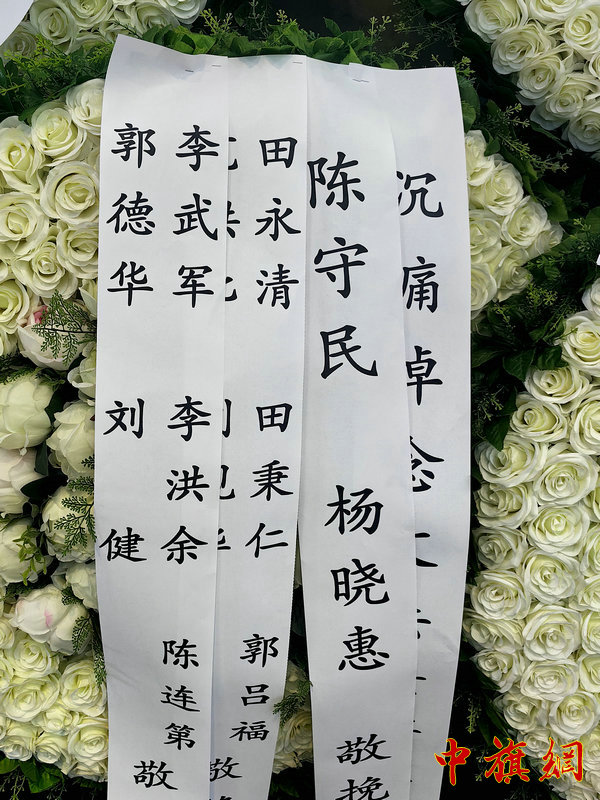 沉痛悼念
陈守民 杨晓惠 敬挽
田永清 田秉仁 郭吕福 敬
李武军 李洪余 陈连第 敬
郭德华 刘健
中旗網